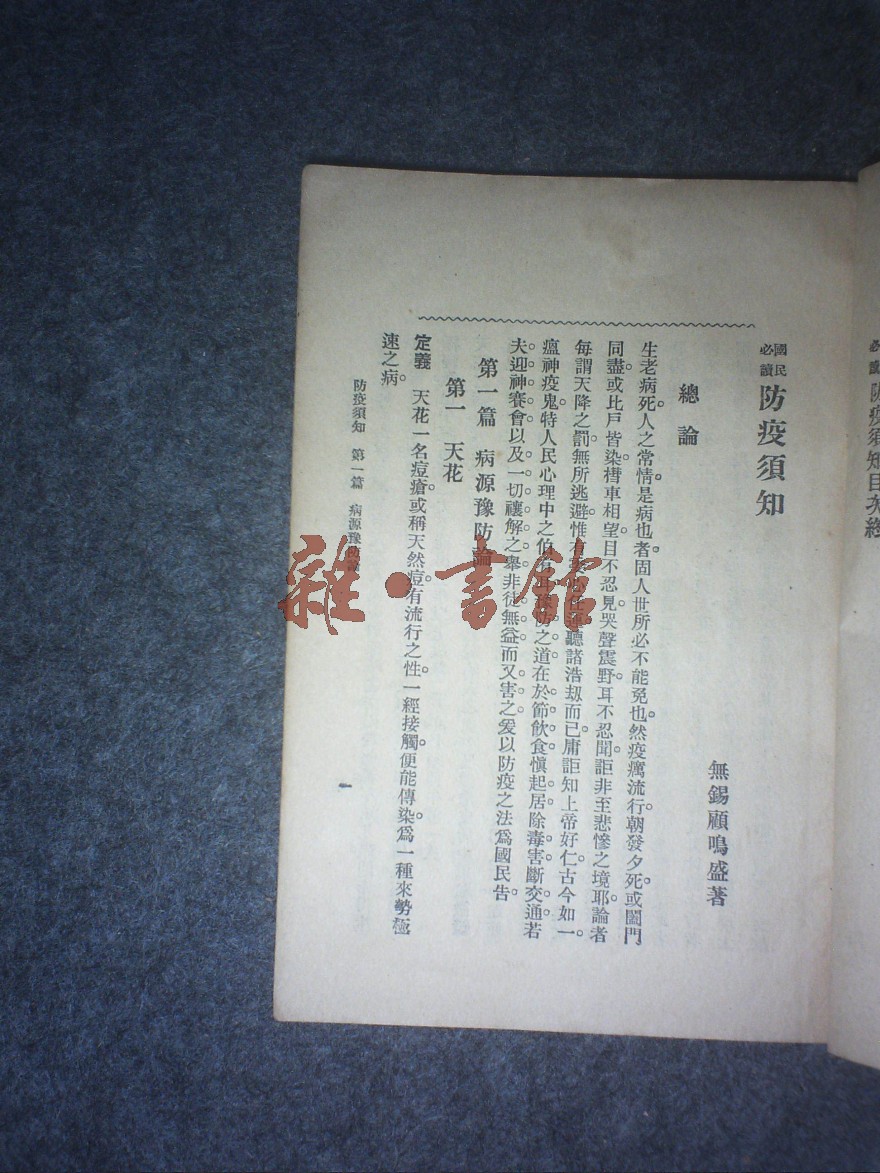 國民必讀
防疫須知
無錫顧鳴盛著
總論
生老病死。人之常情。是病也者。固人世所必不能免也。然疫癘流行。朝發夕死。或闔門
同盡。或比戶皆染。槥車相望。目不忍見。哭聲震野。耳不忍聞。詎非至悲慘之境耶。論者
每謂天降之罰。無所逃避。惟有聽諸浩刼而已。庸詎知上帝好仁。古今如一。
瘟神疫鬼。特人民心理中之防之道。在於節飲食。愼起居。除毒害。斷交通。若
夫迎神賽會。以及一切禳解之舉。非徒無益。而又害之。爰以防疫之法。爲國民告。
第一篇 病源豫防論
第一 天花
定義 天花一名痘瘡。或稱天然痘。有流行之性。一經接觸。便能傳染。爲一種來勢極
速之病。
防疫須知 第一篇 病源豫防論
一
必讀
防疫須知目次終
雜·書館